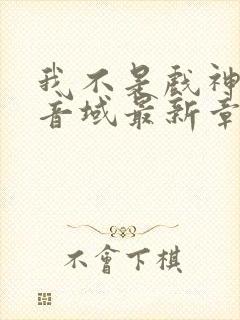 我不是戲神
音域最新章
不會下棋